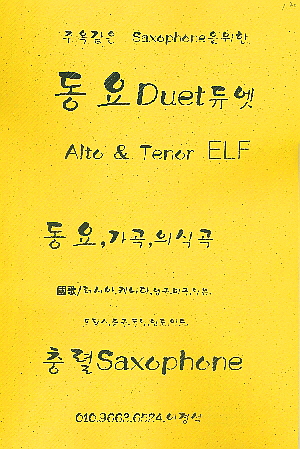 주옥같은 Saxophone을위한
동요Duet듀엣
Alto & Tenor ELF
동요,가곡,의식곡
國歌/러시아,캐나다,영국,미국,
충렬Saxophone
010.9663.6524.이정석